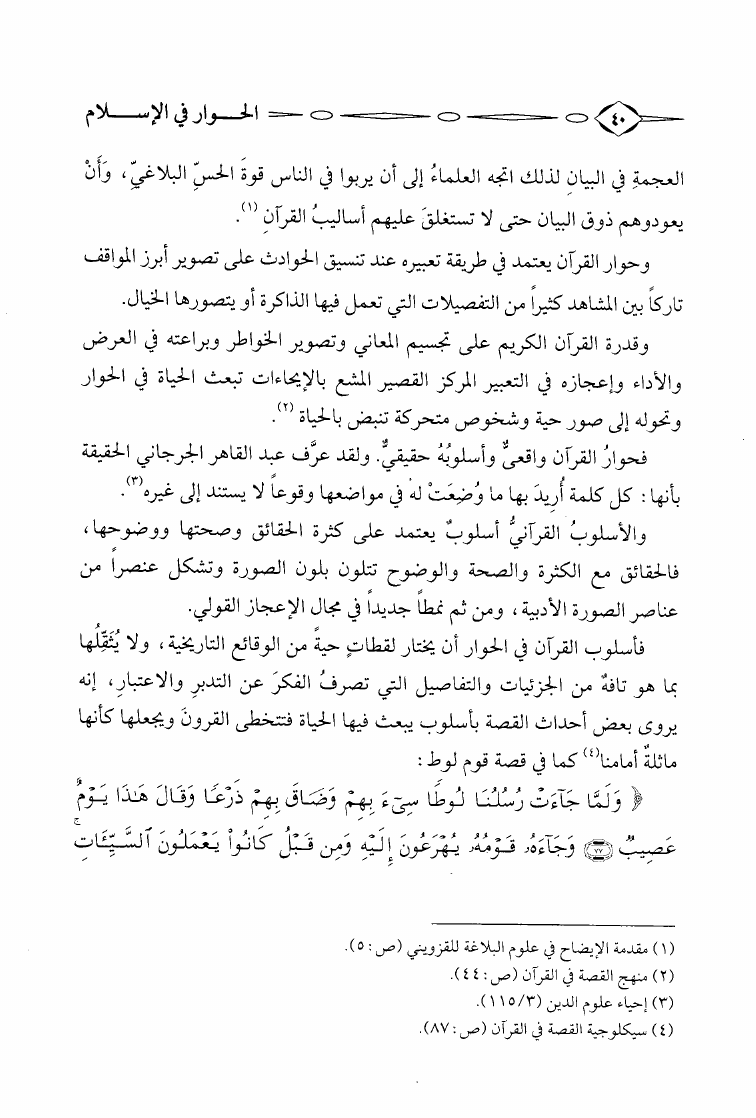 ٤٠ الحـــوار في الإســـلام
العجمةِ في البيانِ لذلك اتجه العلماءُ إلى أن يربوا في الناس قوةَ الحسِّ البلاغيِّ، وَأَنْ
يعودوهم ذوق البيان حتى لا تستغلقَ عليهم أساليبُ القرآنِ (١).
وحوار القرآن يعتمد في طريقة تعبيره عند تنسيق الحوادث على تصوير أبرز المواقف
تاركاً بين المشاهد كثيراً من التفصيلات التي تعمل فيها الذاكرة أو يتصورها الخيال.
وقدرة القرآن الكريم على تجسيم المعاني وتصوير الخواطر وبراعته في العرض
والأداء وإعجازه في التعبير المركز القصير المشع بالإيحاءات تبعث الحياة في الحوار
وتحوله إلى صور حية وشخوص متحركة تنبض بالحياة (٢).
فحوارُ القرآن واقعيٌّ وأسلوبُهُ حقيقيٌّ. ولقد عرَّف عبد القاهر الجرجاني الحقيقة
بأنها: كل كلمة أُرِيدَ بها ما وُضِعَتْ له في مواضعها وقوعاً لا يستند إلى غيره(٣).
والأسلوبُ القرآنيُّ أسلوبٌ يعتمد على كثرة الحقائق وصحتها ووضوحها،
فالحقائق مع الكثرة والصحة والوضوح تتلون بلون الصورة وتشكل عنصراً من
عناصر الصورة الأدبية، ومن ثم نمطاً جديداً في مجال الإعجاز القولي.
فأسلوب القرآن في الحوار أن يختار لقطاتٍ حيةً من الوقائع التاريخية، ولا يُثَقِّلُها
بما هو تافهٌ من الجزئيات والتفاصيل التي تصرفُ الفكرَ عن التدبرِ والاعتبارِ، إنه
يروى بعض أحداث القصة بأسلوب يبعث فيها الحياة فتتخطى القرونَ ويجعلها كأنها
ماثلةٌ أمامنا(٤) كما في قصة قوم لوط:
﴿ وَلَمَّا جَآءَتْ رُسُلُنَا لُوطًا سِىٓءَ بِهِمْ وَضَاقَ بِهِمْ ذَرْعًا وَقَالَ هَٰذَا يَوْمٌ
عَصِيبٌ ٧٧ وَجَآءَهُۥ قَوْمُهُۥ يُهْرَعُونَ إِلَيْهِ وَمِن قَبْلُ كَانُوا۟ يَعْمَلُونَ ٱلسَّيِّـَٔاتِ ۚ
(١) مقدمة الإيضاح في علوم البلاغة للقزويني (ص: ٥).
(٢) منهج القصة في القرآن (ص: ٤٤).
(٣) إحياء علوم الدين (٣/١١٥).
(٤) سيكلوجية القصة في القرآن (ص: ٨٧).